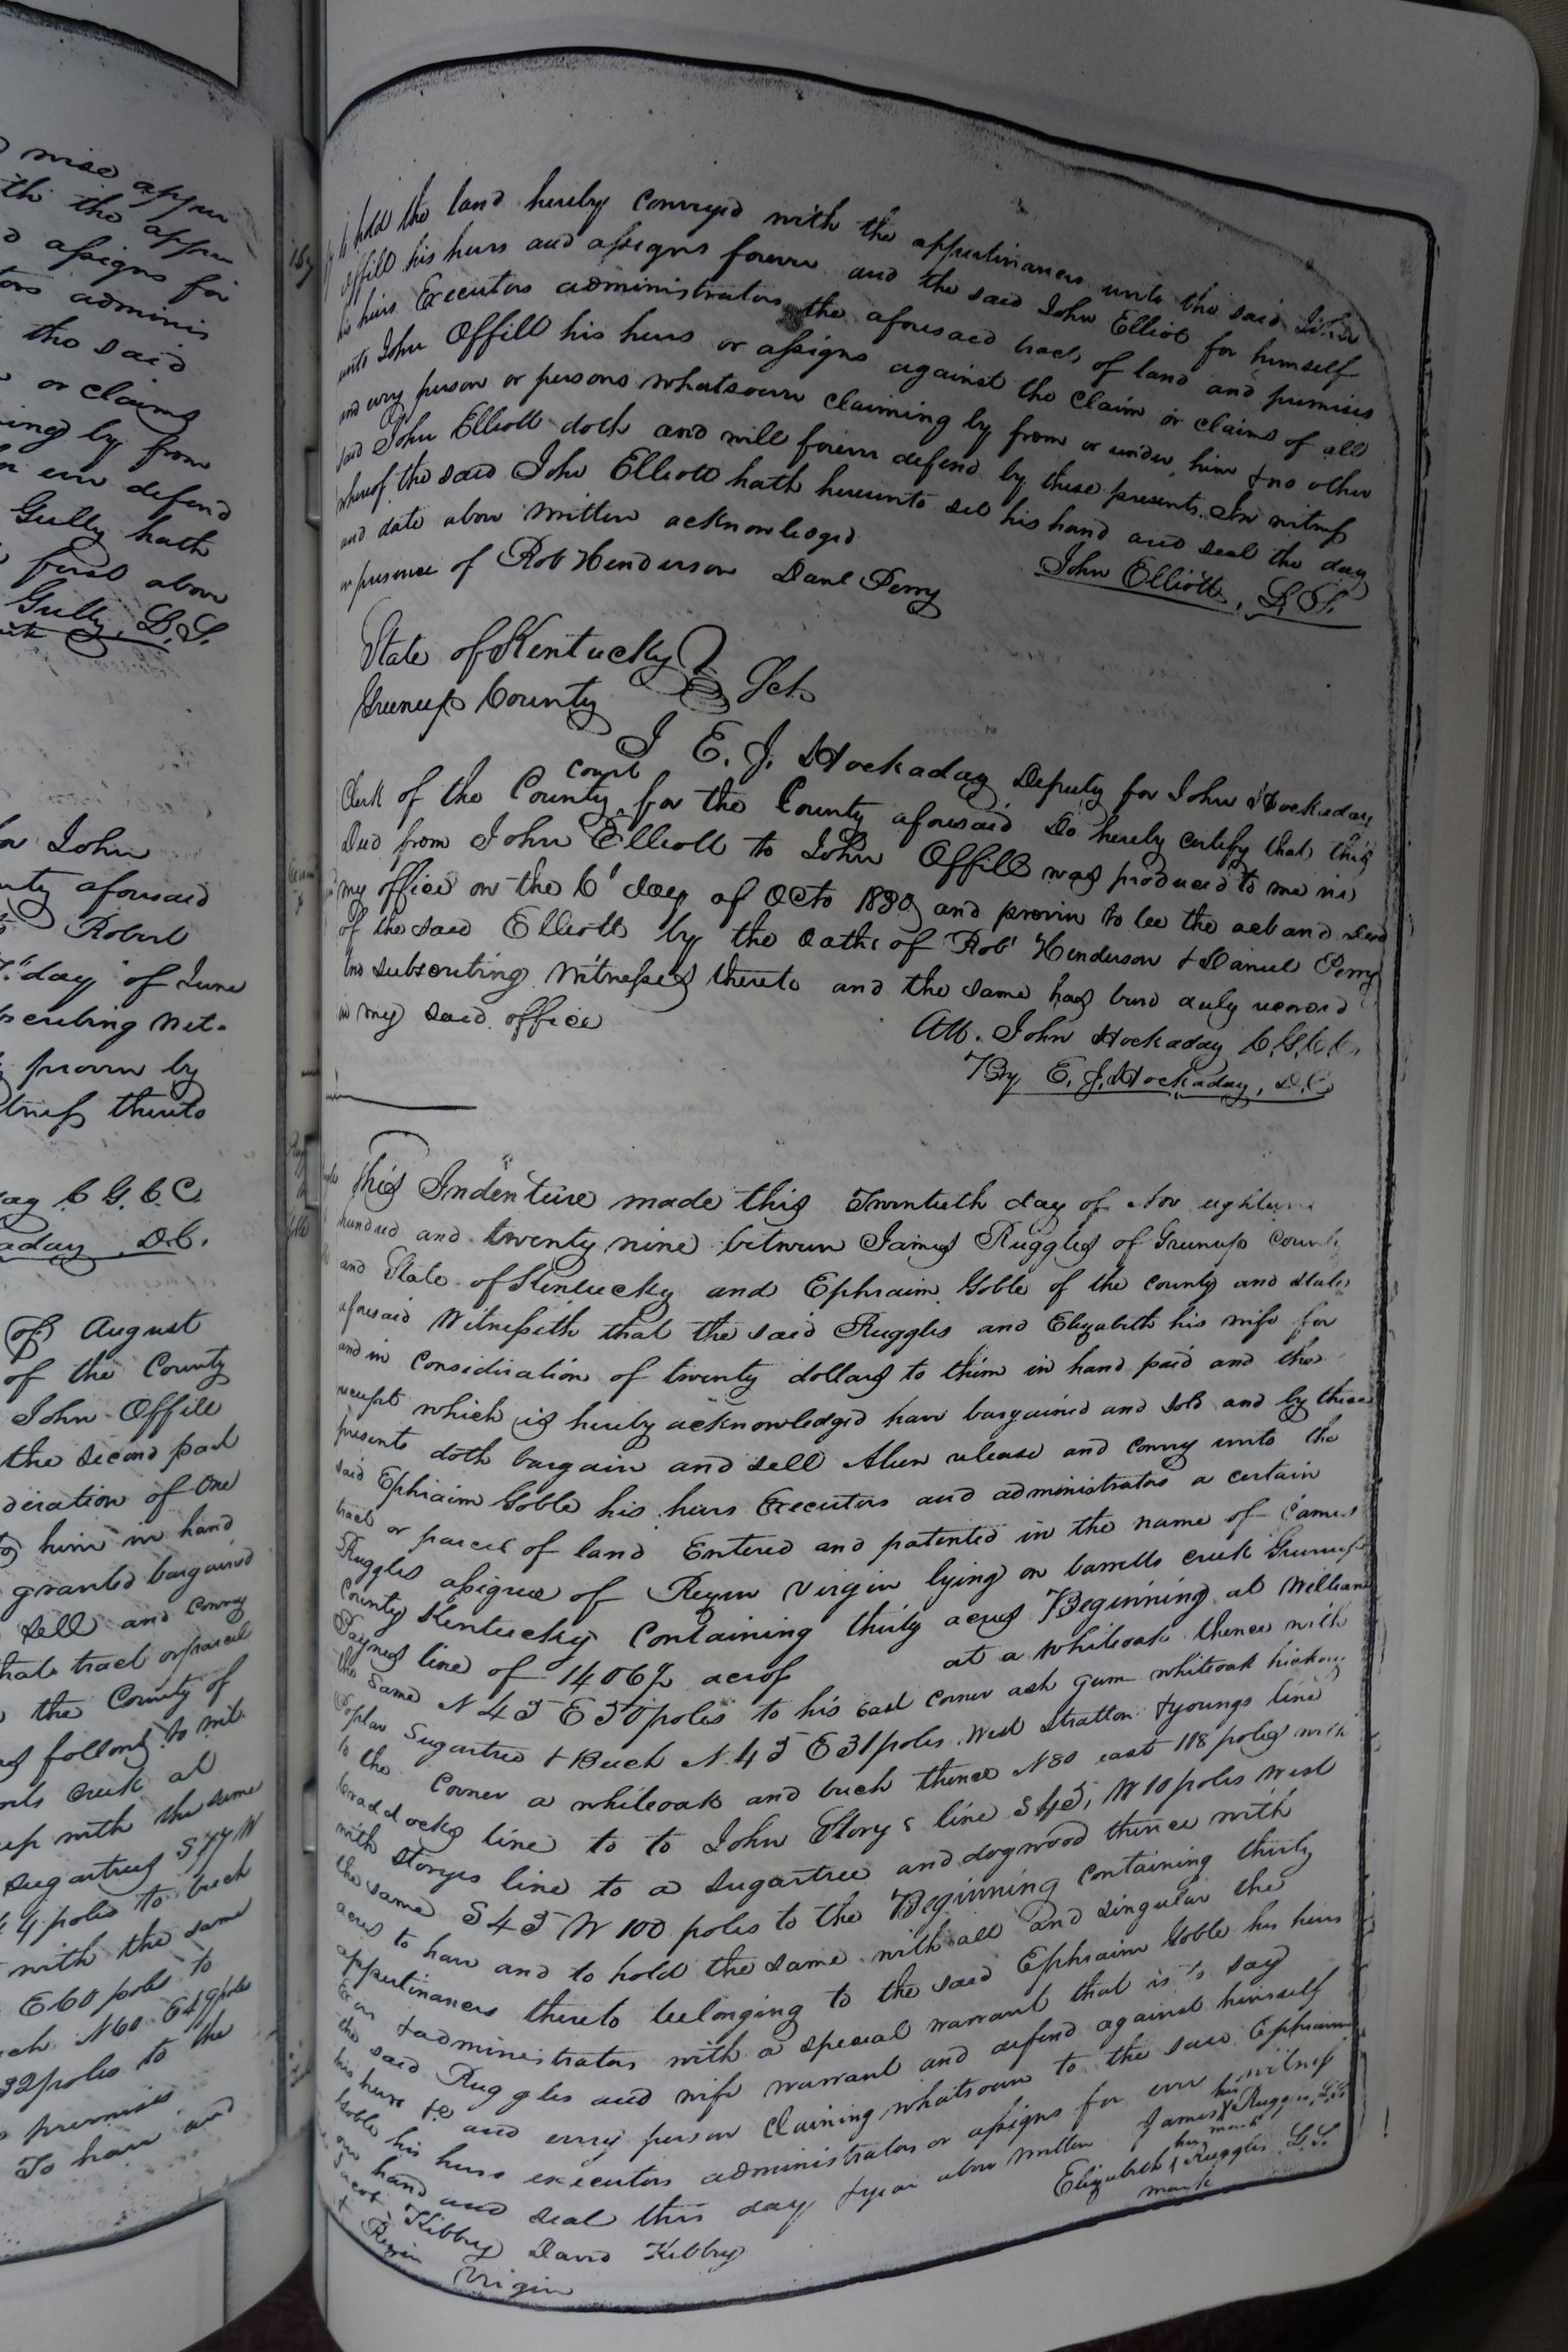 mise appur
th the appur
d assigns for
tors adminis
the said
or claims
ing by from
ever defend
Gully hath
first above
Gully, L.S.
John
nty aforesaid
Robert
day of June
scribing Wit-
proven by
tness thereto
C G C C
aday, D.C.
of August
of the County
John Offill
the second part
deration of One
to him in hand
granted bargained
sell and convey
that tract or parcel
the County of
as follows to wit
creek at
up with the same
sugartrees S 77 W
4 poles to beech
with the same
E 60 poles to
N 60 E 49 poles
32 poles to the
premises
To have and
to hold the land hereby conveyed with the appurtinances unto the said John
Offill his heirs and assigns forever and the said John Elliott for himself
his heirs Executors administrators the aforesaid tract of land and premises
unto John Offill his heirs or assigns against the claim or claims of all
and evry person or persons whatsoever claiming by from or under him & no other
said John Elliott doth and will forever defend by these presents. In witness
whereof the said John Elliott hath hereunto set his hand and seal the day
and date above written acknowledged
in presence of Rob Henderson Danl Perry John Elliott, L.S.
State of Kentucky
Greenup County Sct
I E. J. Hockaday Deputy for John Hockaday
Clerk of the County court for the County aforesaid Do hereby certify that this
Deed from John Elliott to John Offill was produced to me in
my office on the 6' day of Octo 1830 and proven to be the act and deed
of the said Elliott by the oaths of Rob' Henderson & Daniel Perry
two subscribing Witnesses thereto and the same has been duly record
in my said office
Att. John Hockaday C.G.C.C.
By E. J. Hockaday, D.C.
This Indenture made this Twentieth day of Nov eighteen
hundred and twenty nine between James Ruggles of Greenup County
and State of Kentucky and Ephraim Goble of the County and State
aforesaid Witnesseth that the said Ruggles and Elizabeth his wife for
and in consideration of twenty dollars to them in hand paid and the
receipt which is hereby acknowledged have bargained and sold and by these
presents doth bargain and sell Alien release and convey unto the
said Ephraim Goble his heirs Executors and administrators a certain
tract or parcel of land Entered and patented in the name of James
Ruggles asignee of Rezin Virgin lying on barretts creek Greenup
County Kentucky Containing thirty acres Beginning at William
Paynes line of 1406⅔ acres at a whiteoak thence with
the same N 45 E 50 poles to his East corner ash gum whiteoak hickory
Poplar Sugartree & Beech N. 45 E 31 poles. West Stratton & youngs line
to the Corner a whiteoak and beech thence N80 east 118 poles with
Craddocks line to to John Storys line S 45, W 10 poles West
with Storyes line to a Sugartree and dogwood thence with
the same S 45 W 100 poles to the Beginning containing thirty
acres to have and to hold the same with all and singular the
appurtinances thereto belonging to the said Ephraim Goble his heirs
Exs & administrators with a special warrant that is to say
the said Ruggles and wife warrant and defend against himself
his heirs &c and evry person claiming whatsoever to the said Ephraim
Goble his heirs executors administrators or assigns for ever witness
our hand and seal this day & year above written James his X mark Ruggles L.S.
Jacob Kibby David Kibby Elizabeth her X mark Ruggles L.S.
& Rezin Virgin